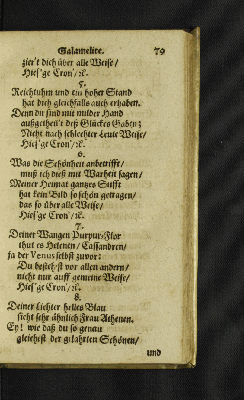 Galamelite. 79
zier't dich über alle Weise/
Hies'ge Cron'/ ꝛc.
5.
Reichtuhm und ein hoher Stand
hat dich gleichfalls auch erhaben.
Denn du sind mit milder Hand
außgetheil't deß Glückes Gaben;
Nicht nach schlechter Leute Weise/
Hies'ge Cron'/ ꝛc.
6.
Was die Schönheit anbetrifft/
muß ich dieß mit Warheit sagen/
Meiner Heimat gantzes Stifft
hat kein Bild so schön getragen/
das so über alle Weise/
Hies'ge Cron'/ ꝛc.
7.
Deiner Wangen Purpur-Flor
thut es Helenen/ Cassandren/
ja der Venus selbst zuvor:
Du besteh'st vor allen andern/
nicht nur auff gemeine Weise/
Hies'ge Cron'/ ꝛc.
8.
Deiner Lichter helles Blau
sieht sehr ähnlich Frau Athenen.
Ey! wie daß du so genau
gleichest der gelahrten Schönen/
und